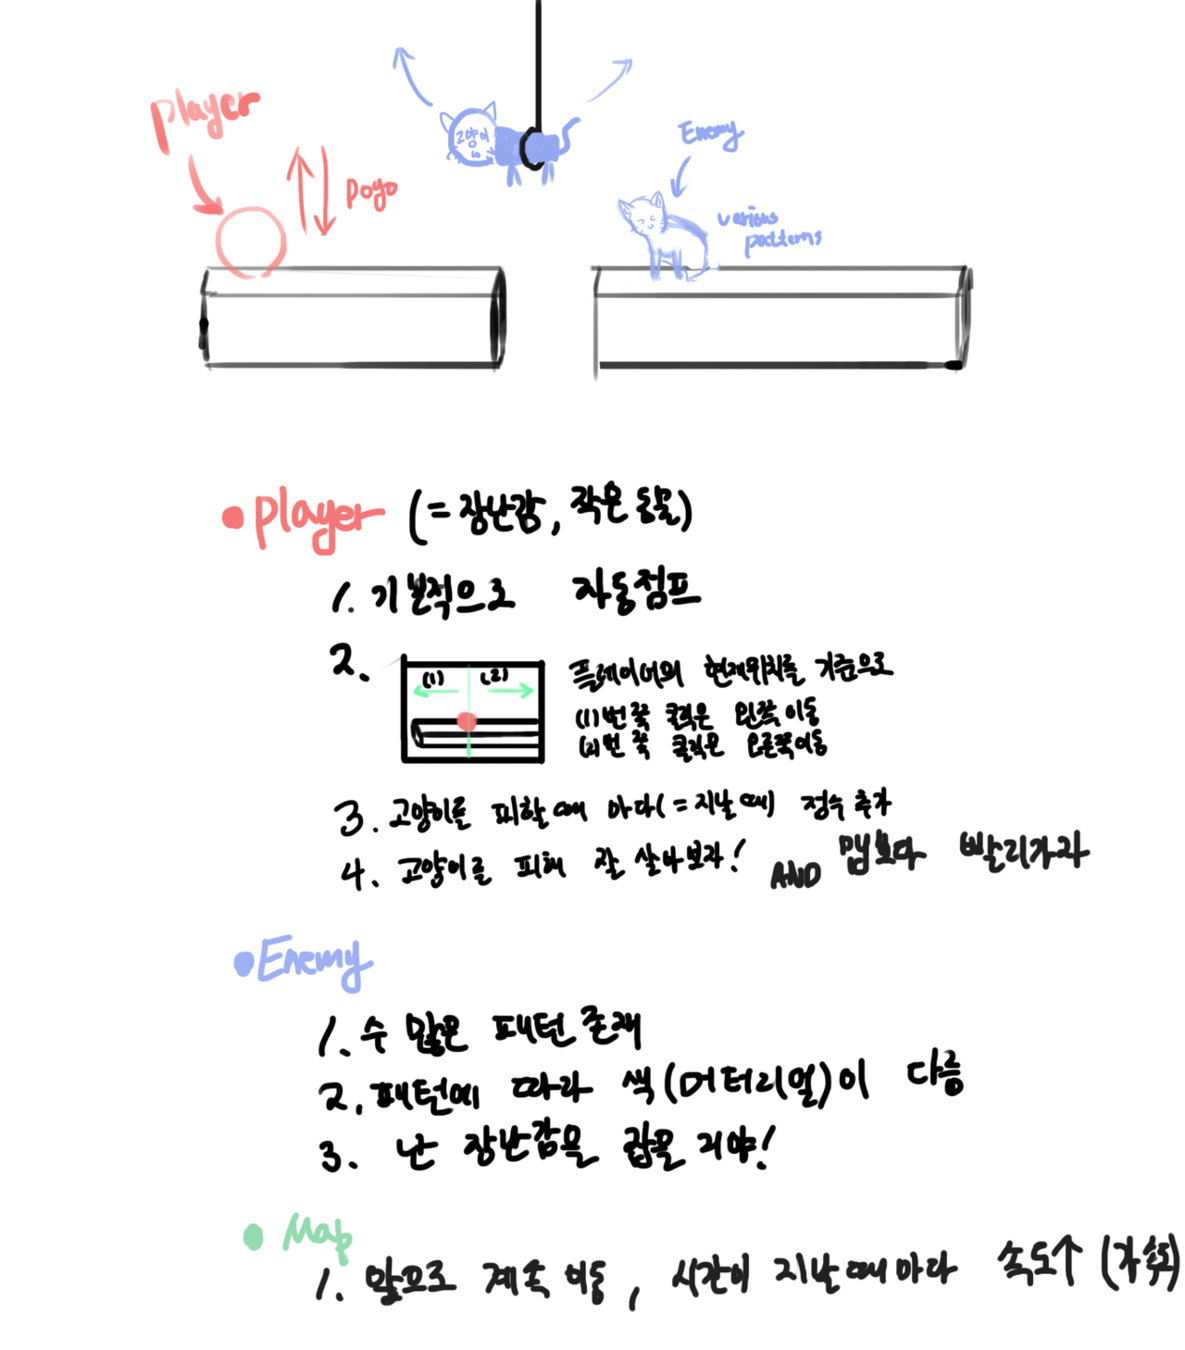 player
pogo
고양이
Enemy
various
patterns
• player (= 장난감, 작은 동물)
1. 기본적으로 자동점프
2.
(1) (2)
플레이어의 현재위치를 기준으로
(1)번 쪽 클릭은 왼쪽이동
(2)번 쪽 클릭은 오른쪽이동
3. 고양이를 피할때 마다(=지날때) 점수추가
4. 고양이를 피해 잘 살아보자! AND 맵보다 빨리가자
• Enemy
1. 수 많은 패턴존재
2. 패턴에 따라 색(머터리얼)이 다름
3. 난 장난감을 잡을꺼야!
• Map
1. 앞으로 계속 이동, 시간이 지날때마다 속도↑ (가속)